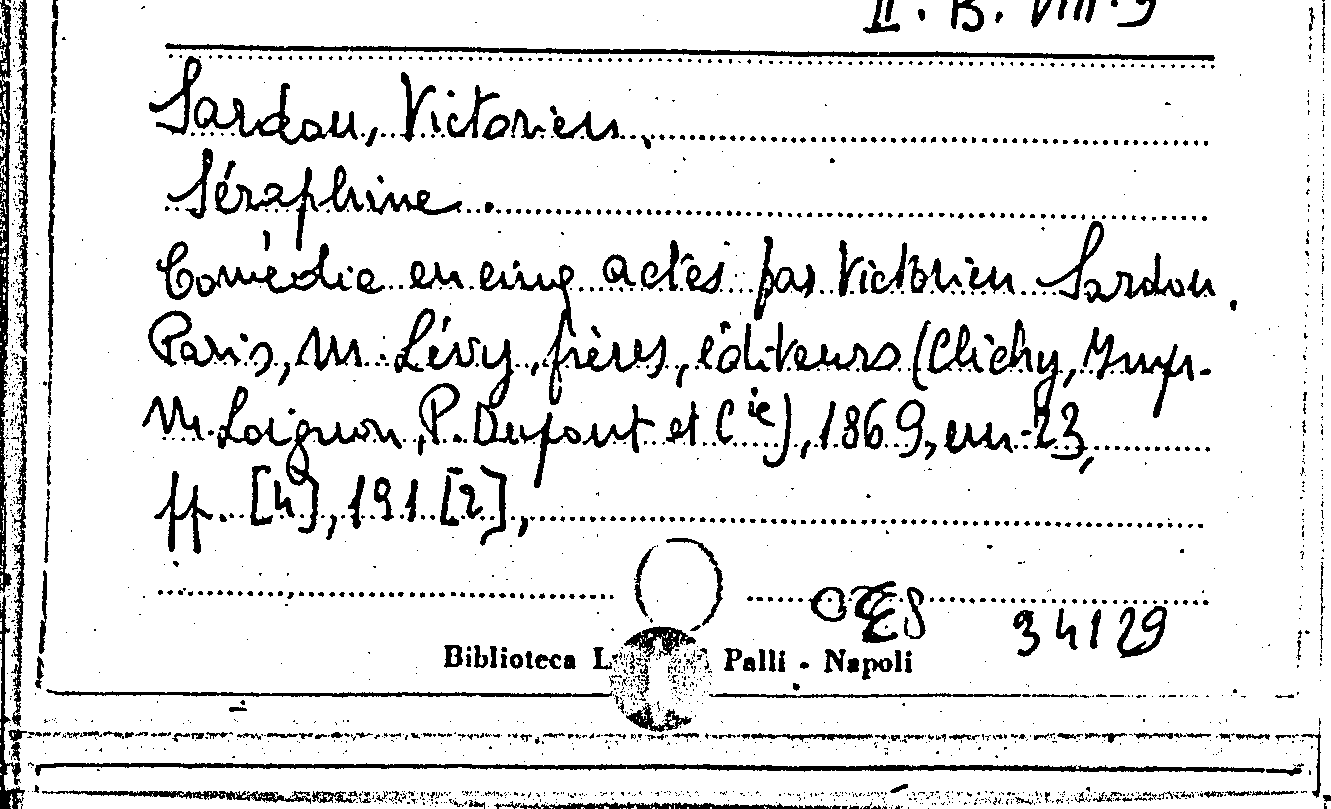 II. B. VIII. 9
Sardou, Victorien.
Séraphine.
Comédie en cinq actes par Victorien Sardou.
Paris, M. Lévy, frères, éditeurs (Clichy, Impr.
M. Loignon, P. Dupont et Cie), 1869, en-23,
pp. [4], 191 [2],
34129
Biblioteca L Palli - Napoli